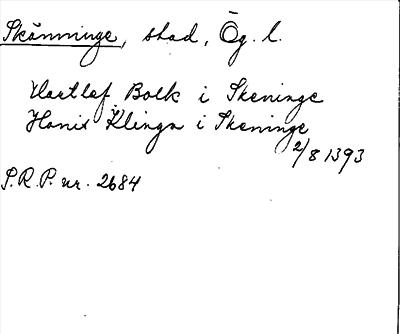 Skänninge, stad, Ög. l.
Hartlef Bolk i Skeninge
Hanis Klinga i Skeninge
2/8 1393
S.R.P. nr. 2684